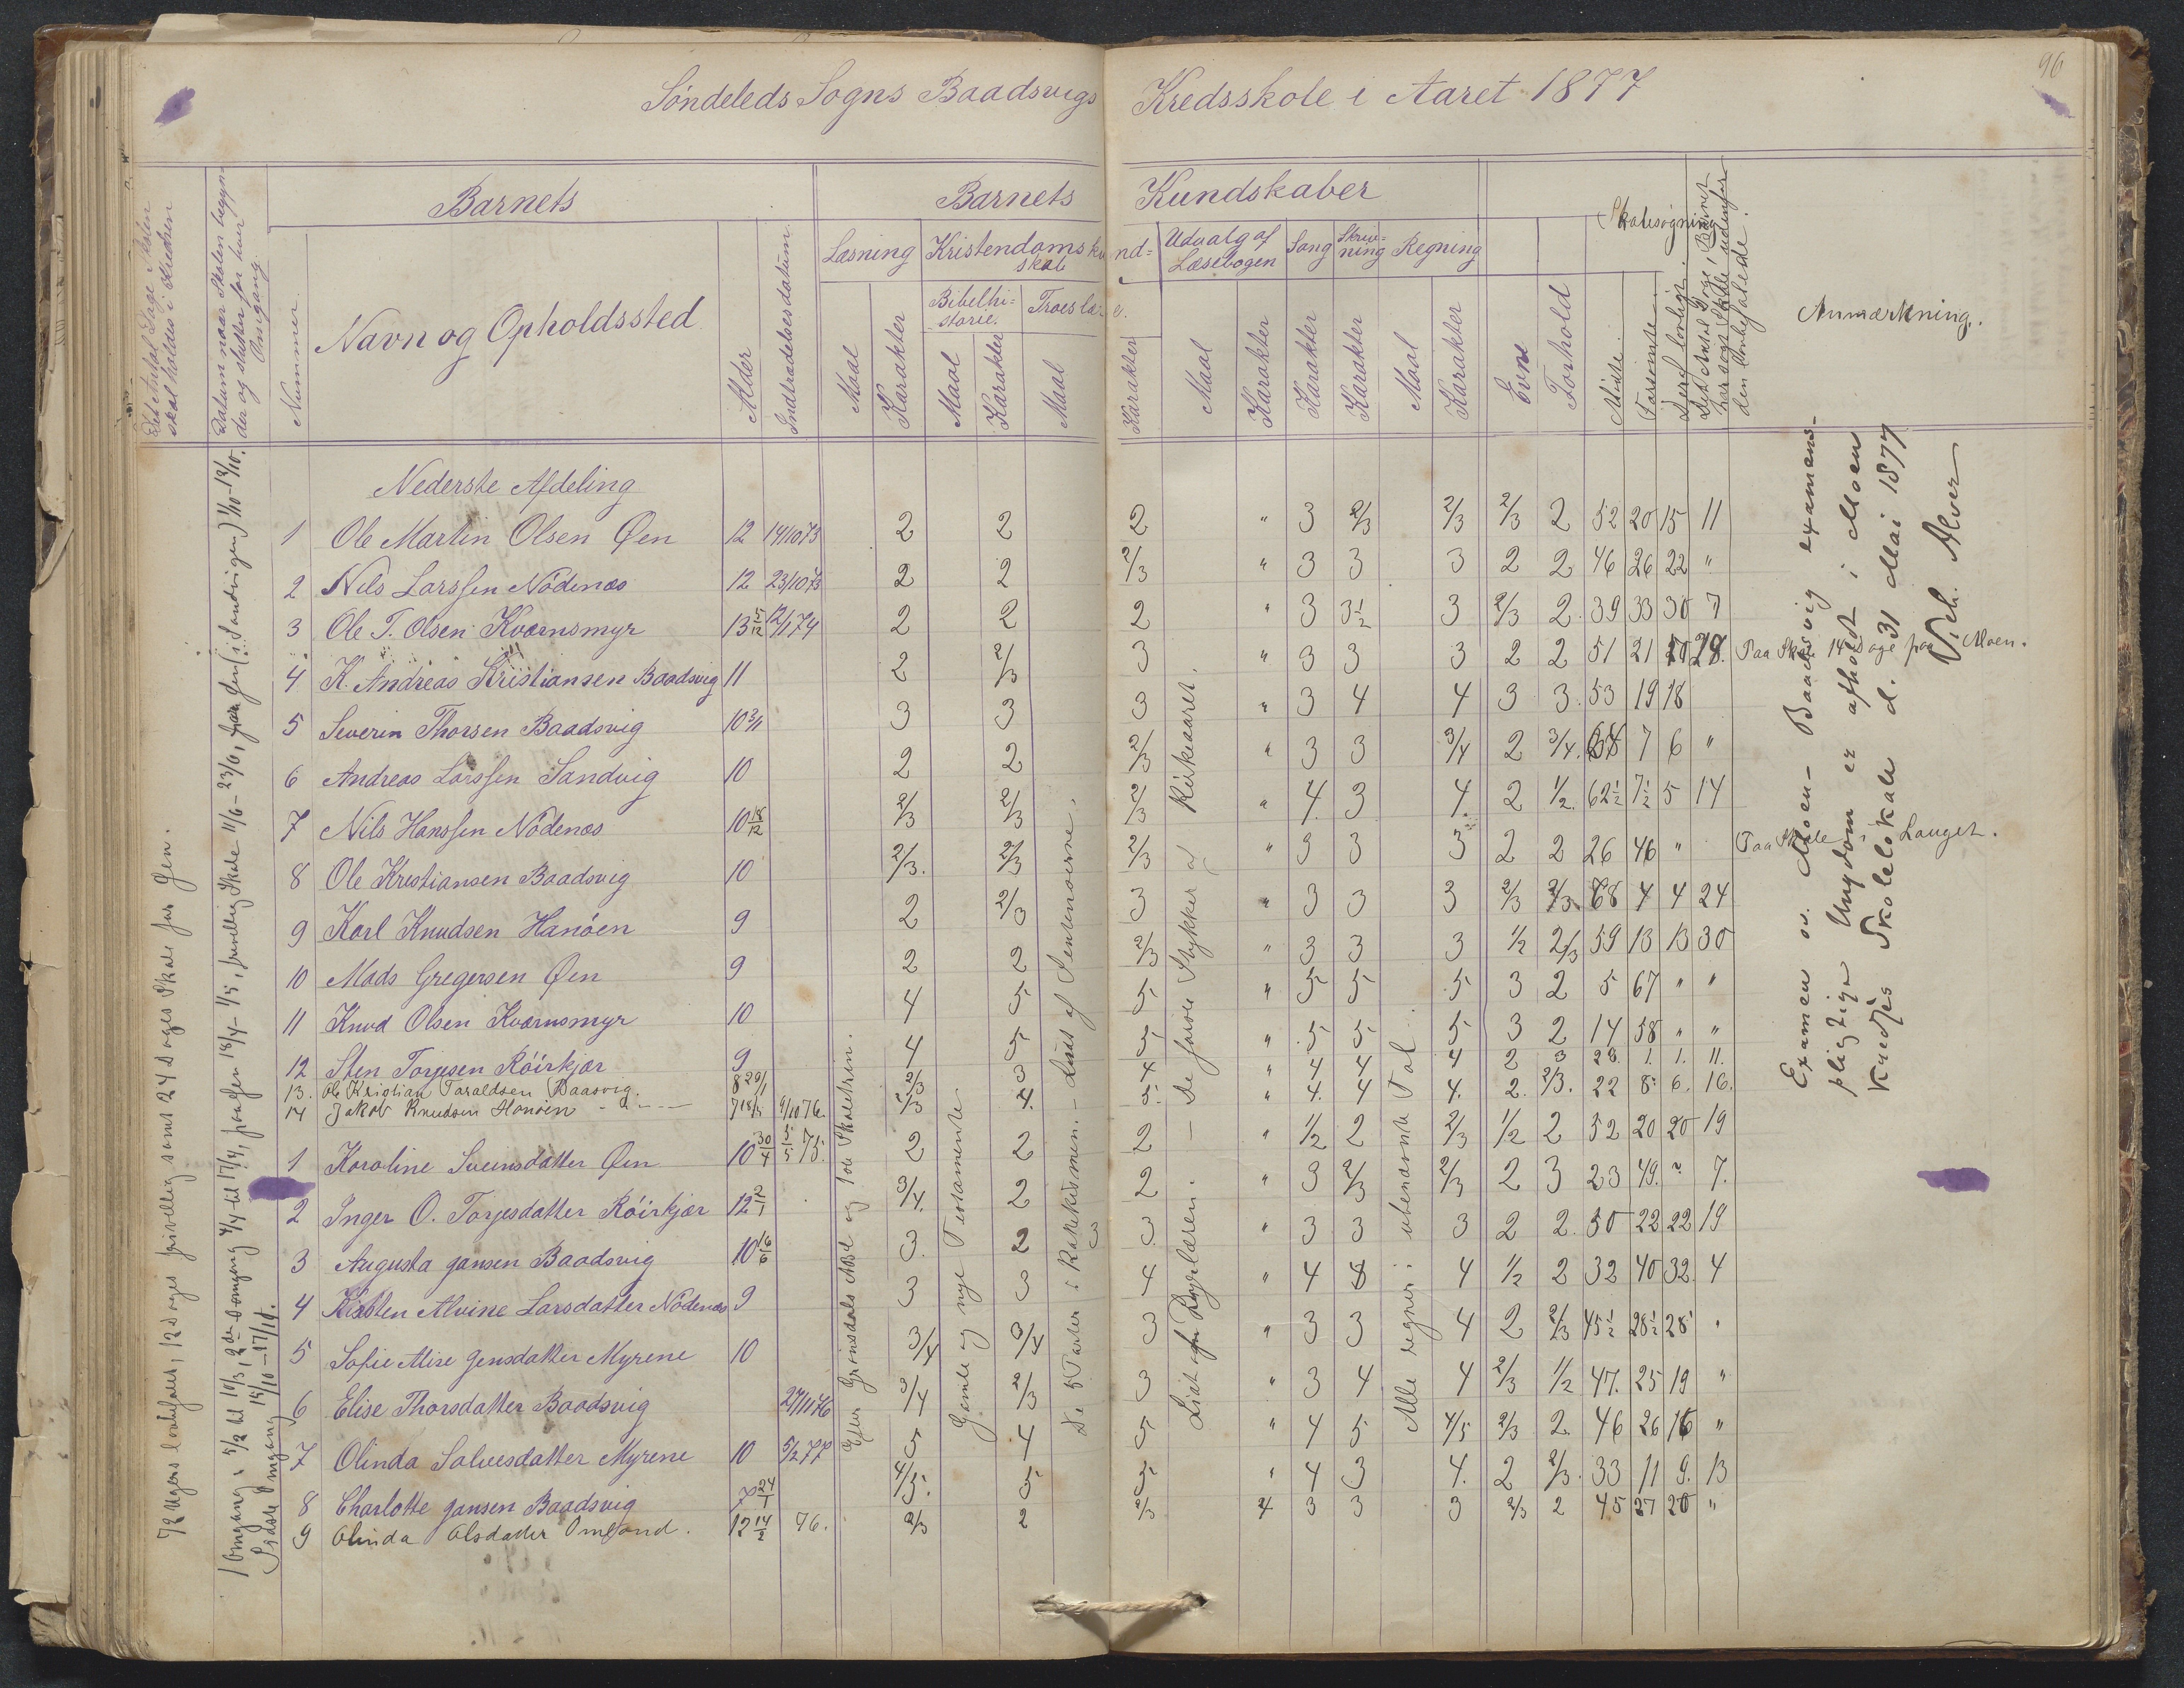 96
Søndeleds Sogns Baadsvigs Kredsskole i Aaret 1877
Det Antal Dage Skolen
skal holdes i Kredsen
Datum naar Skolen begyn-
der og slutter for hver
Omgang.
Barnets
Barnets Kundskaber
Skolesøgning
Nummer.
Navn og Opholdssted
Alder
Indtrædelsesdatum.
Læsning
Kristendomskund-
skab
Bibelhi-
storie.
Troeslære.
Udvalg af
Læsebogen
Sang
Skriv-
ning
Regning
Maal
Karakter
Maal
Karakter
Maal
Karakter
Maal
Karakter
Karakter
Karakter
Maal
Karakter
Evne
Forhold
Mødte.
Forsømte.
Deraf lovligt.
Det Antal Dage, Barnet
har søgt Skole udenfor
den lovbefalede.
Anmærkning.
72 Ugers lovbefalet, 12 Dages frivillig samt 24 Dages Skole paa Øen.
Nederste Afdeling
1 Ole Martin Olsen Øen 12 14/10 73 2 2 2 " 3 2/3 2/3 2/3 2 52 20 15 11
2 Nils Larssen Nødenæs 12 23/10 73 2 2 2/3 " 3 3 3 2 2 46 26 22 "
3 Ole T. Olsen Kværnsmyr 13 5/12 12/1 74 2 2 2 " 3 3½ 3 2/3 2. 39 33 30 7
4 K. Andreas Kristiansen Baadsvig 11 2 2/3 3 " 3 3 3 2 2 51 21 28. Paa Skole 14 Dage paa Moen.
5 Severin Thorsen Baadsvig 10 3/11 3 3 3 " 3 4 4 3 3. 53 19 18
6 Andreas Larssen Sandvig 10 2 2 2/3 " 3 3 3/4 2 3/4. 7 6 "
7 Nils Hanssen Nødenæs 10 18/12 2/3 2/3 2/3 " 4. 3 4. 2 1/2. 62½ 7½ 5 14
8 Ole Kristiansen Baadsvig 10 2/3. 2/3 2/3 " 3 3 3 2 2 26 46 " Paa Skole i Lauget.
9 Karl Knudsen Hanøen 9 2 2/3 3 " 3 3 3 2/3 2/3. 68 4 4 24
10 Mads Gregersen Øen 9 2 2 2/3 " 3 3 3 1/2 2/3 59 13 13 30
11 Knud Olsen Kværnsmyr 10 4 5 5 " 5 5 5 3 2 5 67 " "
12 Sten Torjesen Røirkjær 9 4 5 5 " 5 5 5 3 2 14 58 " "
13. Ole Kristian Taraldsen Baasvig. 8 29/1 2/3 3 4 " 4 4 4 2 3 28. 1. 1. 11.
14 Jakob Knudsen Hanøen - " - 7 18/5 9/10 76. 2/3 4. 5. " 4. 4 4. 2. 2/3. 22 8. 6. 16.
1 Karoline Svensdatter Øen 10 30/4 5/5 75. 2 2 2 " 1/2 2 2/3 1/2 2 52 20 20 19
2 Inger O. Torjesdatter Røirkjær 12 2/1 3/4. 2 2 " 3 2/3 2/3 2 3 23 49. " 7.
3 Augusta Jansen Baadsvig 10 16/6 3. 2 3 3 " 3 3 3 2 2. 50 22 22 19
4 Kirsten Alvine Larsdatter Nødenæs 9 3 3 4 " 4 4 1/2 2 32 40 32. 4
5 Sofie Alise Jensdatter Myrene 10 3/4 3/4 3 " 3 3 4 2 2/3 45½ 28½ 28 "
6 Elise Thorsdatter Baadsvig 27/11 76 3/4 2/3 3 " 3 4 4 2/3 1/2 47. 25 19 "
7 Olinda Salvesdatter Myrene 10 5/2 77 5 4 5 " 4 5 4/5 2/3 2. 46 26 16 "
8 Charlotte Jansen Baadsvig 7 24/1 4/5. 5 5 " 4 3 4. 2 2/3. 33 11 9. 13
9 Olinda Olsdatter Omland. 12 14/2 76. 2/3 2 2/3 4 3 3 3 2/3 2 45 27 20 "
1 Omgang: 5/2 til 10/3, 2den Omgang 4/4 til 17/4, paa Øen 18/4 - 1/5, frivillig Skole 11/6 - 23/6, paa Øen (i Sandvigen) 1/10 - 12/10.
Sidste Omgang 15/10 - 17/11.
Efter Grønsdals Abc og 1ste Skoletrin.
Gamle og nye Testamente
De 5 Parter i Katekismen. - Lidt af Sentenserne.
Lidt af Dyrelæren. - De første Stykker af Kirkeaaret.
Alle regner i ubenævnte Tal.
Examen ov. Moen - Baadsvig examens-
pligtige Ungdom er afholdt i Moen
Kredses Skolelokale d. 31 Mai 1877
Vilh. Alver